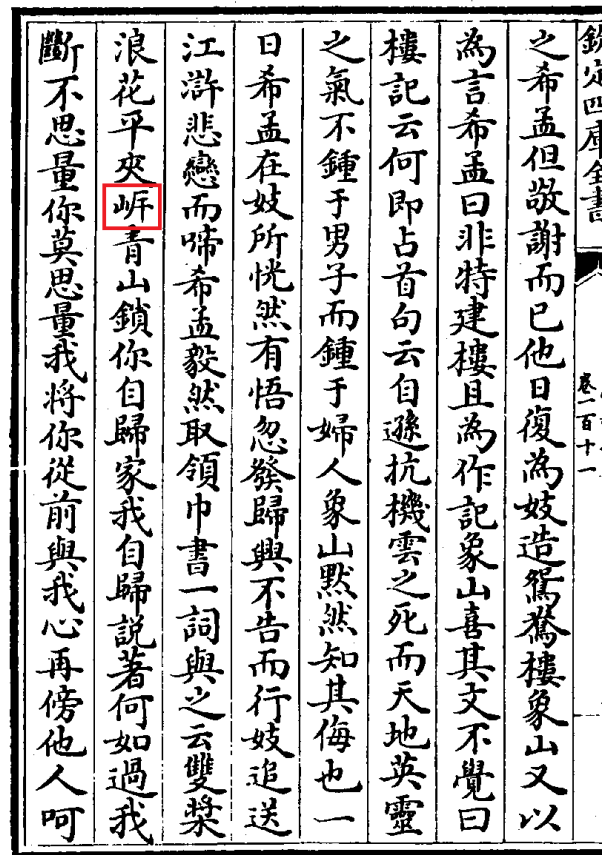 欽定四庫全書
卷一百十一
之希孟但敬謝而已他日復為妓造鴛鴦樓象山又以
為言希孟曰非特建樓且為作記象山喜其文不覺曰
樓記云何即占首句云自遜抗機雲之死而天地英靈
之氣不鍾于男子而鍾于婦人象山默然知其侮也一
日希孟在妓所恍然有悟忽發歸興不告而行妓追送
江滸悲戀而啼希孟毅然取領巾書一詞與之云雙槳
浪花平夾㟁青山鎖你自歸家我自歸説著何如過我
斷不思量你莫思量我將你從前與我心再傍他人呵